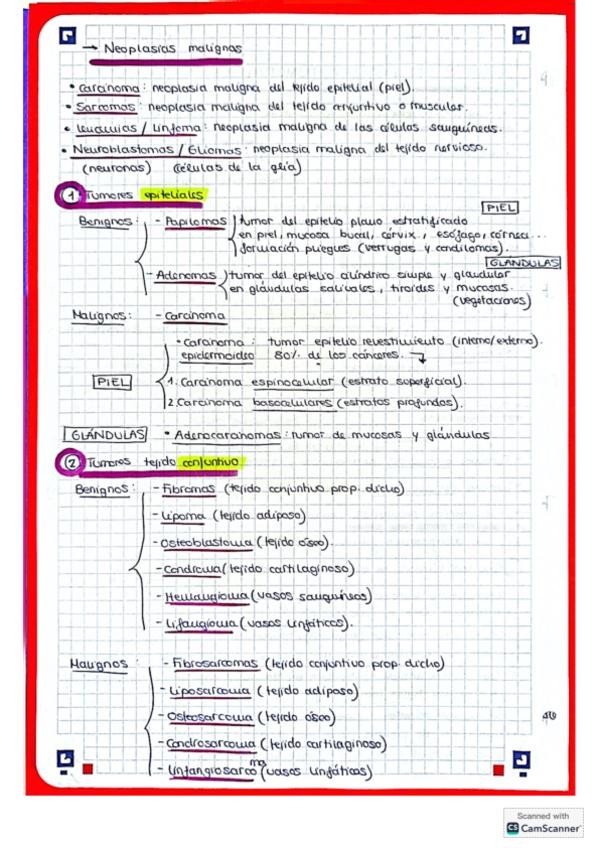 → Neoplasias malignas
• Carcinoma: neoplasia maligna del tejido epitelial (piel).
• Sarcomas: neoplasia maligna del tejido conjuntivo o muscular.
• Leucemias / Linfoma: neoplasia maligna de las células sanguíneas.
• Neuroblastomas / Gliomas: neoplasia maligna del tejido nervioso.
(neuronas) (células de la glía)
1 Tumores epiteliales
PIEL
Benignos: - Papilomas tumor del epitelio plano estratificado
en piel, mucosa bucal, cérvix, esófago, córnea...
formación pliegues (verrugas y condilomas).
GLÁNDULAS
- Adenomas tumor del epitelio cilíndrico simple y glandular
en glándulas salivales, tiroides y mucosas.
(vegetaciones)
Malignos: - Carcinoma
• Carcinoma: tumor epitelio revestimiento (interno/externo).
epidermoideo 80% de los cánceres.
PIEL
1. Carcinoma espinocelular (estrato superficial).
2. Carcinoma basocelulares (estratos profundos).
GLÁNDULAS • Adenocarcinomas: tumor de mucosas y glándulas
2 Tumores tejido conjuntivo
Benignos: - Fibromas (tejido conjuntivo prop. dicho)
- Lipoma (tejido adiposo)
- Osteoblastoma (tejido óseo).
- Condroma (tejido cartilaginoso)
- Hemangioma (vasos sanguíneos)
- Lifangioma (vasos linfáticos).
Malignos: - Fibrosarcomas (tejido conjuntivo prop. dicho)
- Liposarcoma (tejido adiposo)
- Osteosarcoma (tejido óseo)
- Condrosarcoma (tejido cartilaginoso)
- Linfangiosarcoma (vasos linfáticos)
Scanned with
CS CamScanner